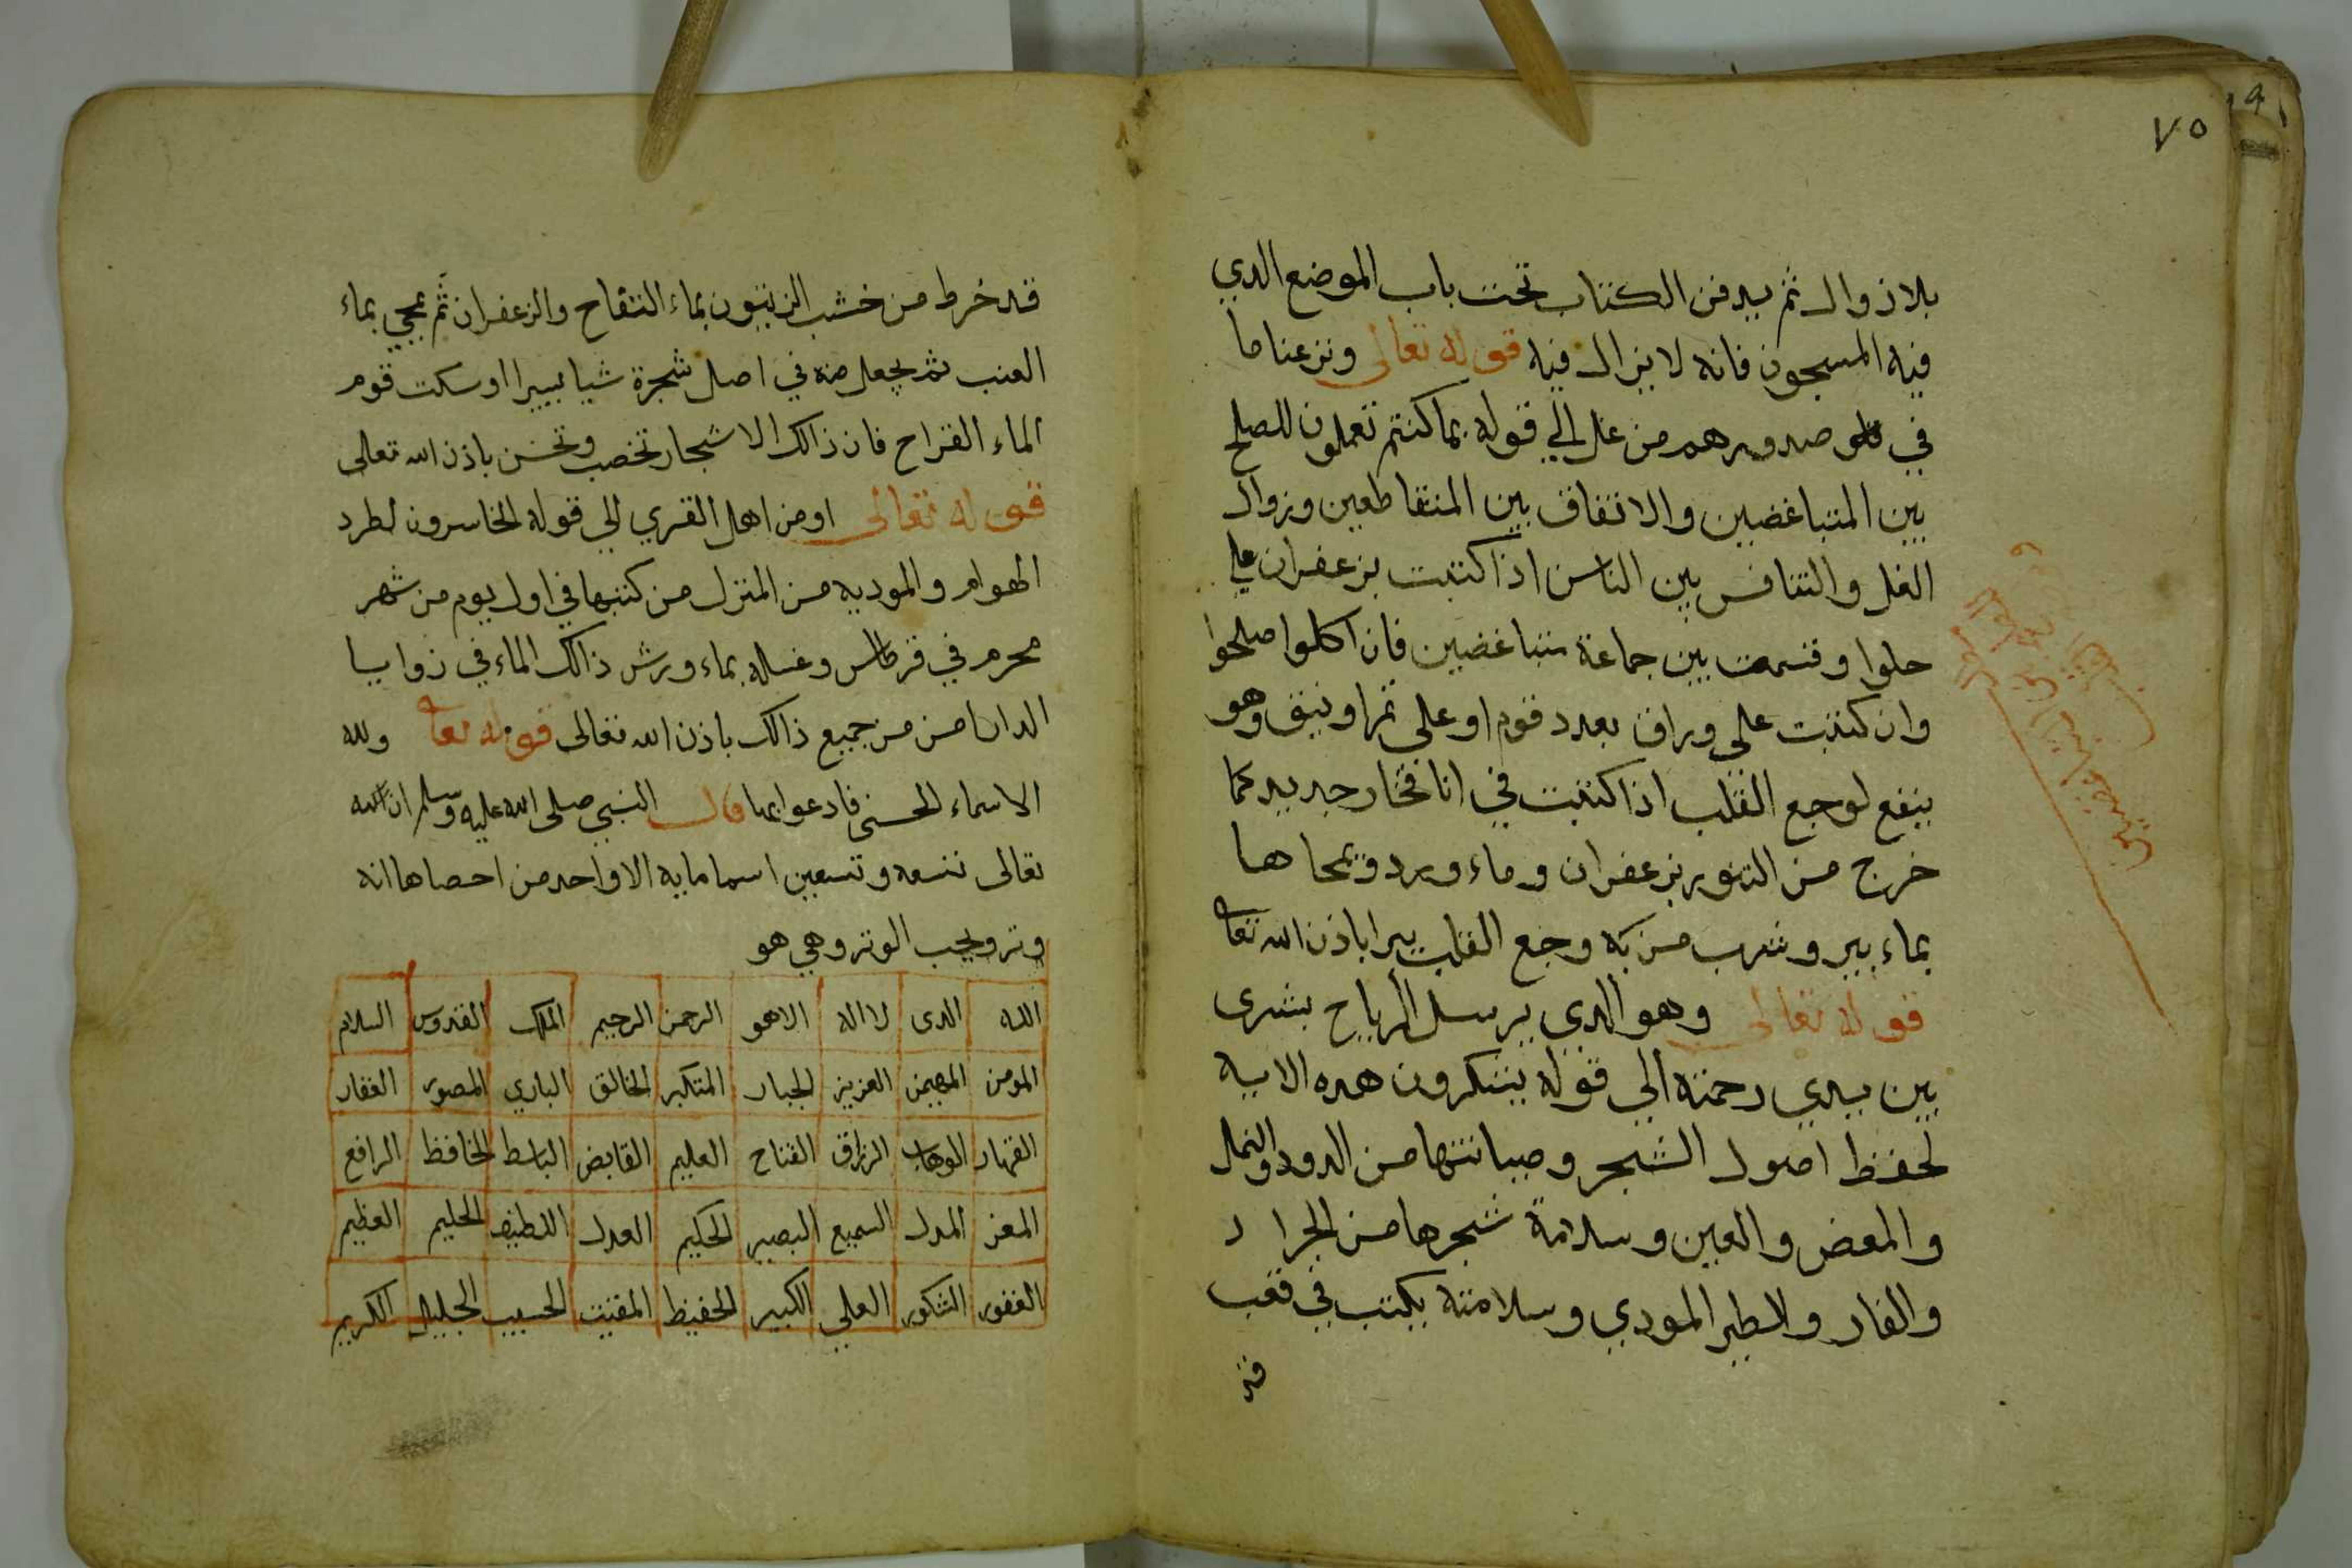 ٧٥
بلا زوال ثم يدفن الكتاب تحت باب الموضع الدي
فيه المسجون فانه لا يزال فيه قوله تعالى ونزعنا ما
في صدورهم من غل الي قوله بما كنتم تعملون للصلح
بين المتباغضين والاتفاق بين المتقاطعين وزوال
الغل والتنافس بين الناس اذا كتبت بزعفران علي
حلوا وقسمت بين جماعة متباغضين فان اكلوا صلحوا
وان كتبت على وراق بعدد قوم او على تمر او نبق وهو
ينفع لوجع القلب اذا كتبت في انا فخار جديد كما
خرج من التنور بزعفران وماء ورد ويمحاها
بماء بير وشرب من به وجع القلب يبرا باذن الله تعا
قوله تعالى وهو الدي يرسل الرياح بشرى
بين يدي رحمته الي قوله يشكرون هده الايه
لحفظ اصول الشجر وصيانتها من الدود والنمل
والمعض والعين وسلامة شجرها من الجراد
والفار والطير المودي وسلامته يكتب في قعب
قد
قد خرط من خشب الزيتون بماء التفاح والزعفران ثم يمحي بماء
العنب ثم يجعل منه في اصل شجرة شيا يسيرا او سكت قوم
الماء القراح فان ذالك الاشجار تخصب وتحسن باذن الله تعالى
قوله تعالى اومن اهل القري الي قوله الخاسرون لطرد
الهوام والموديه من المنزل من كتبها في اول يوم من شهر
محرم في قرطاس وغسله بماء ورش ذالك الماء في زوايا
الدار امن من جميع ذالك باذن الله تعالى قوله تعا ولله
الاسماء الحسنى فادعوا بها قال النبي صلى الله عليه وسلم ان لله
تعالى تسعه وتسعين اسما مايه الا واحد من احصاها انه
وتر ويحب الوتر وهي هو
الله الدى لا اله الا هو الرحمن الرحيم الملك القدوس السلام
المومن المهيمن العزيز الجبار المتكبر الخالق الباري المصور الغفار
القهار الوهاب الرزاق الفتاح العليم القابض الباسط الخافظ الرافع
المعز المدل السميع البصير الحكيم العدل اللطيف الحليم العظيم
الغفور الشكور العلي الكبير الحفيظ المقيت الحسيب الجليل الكريم